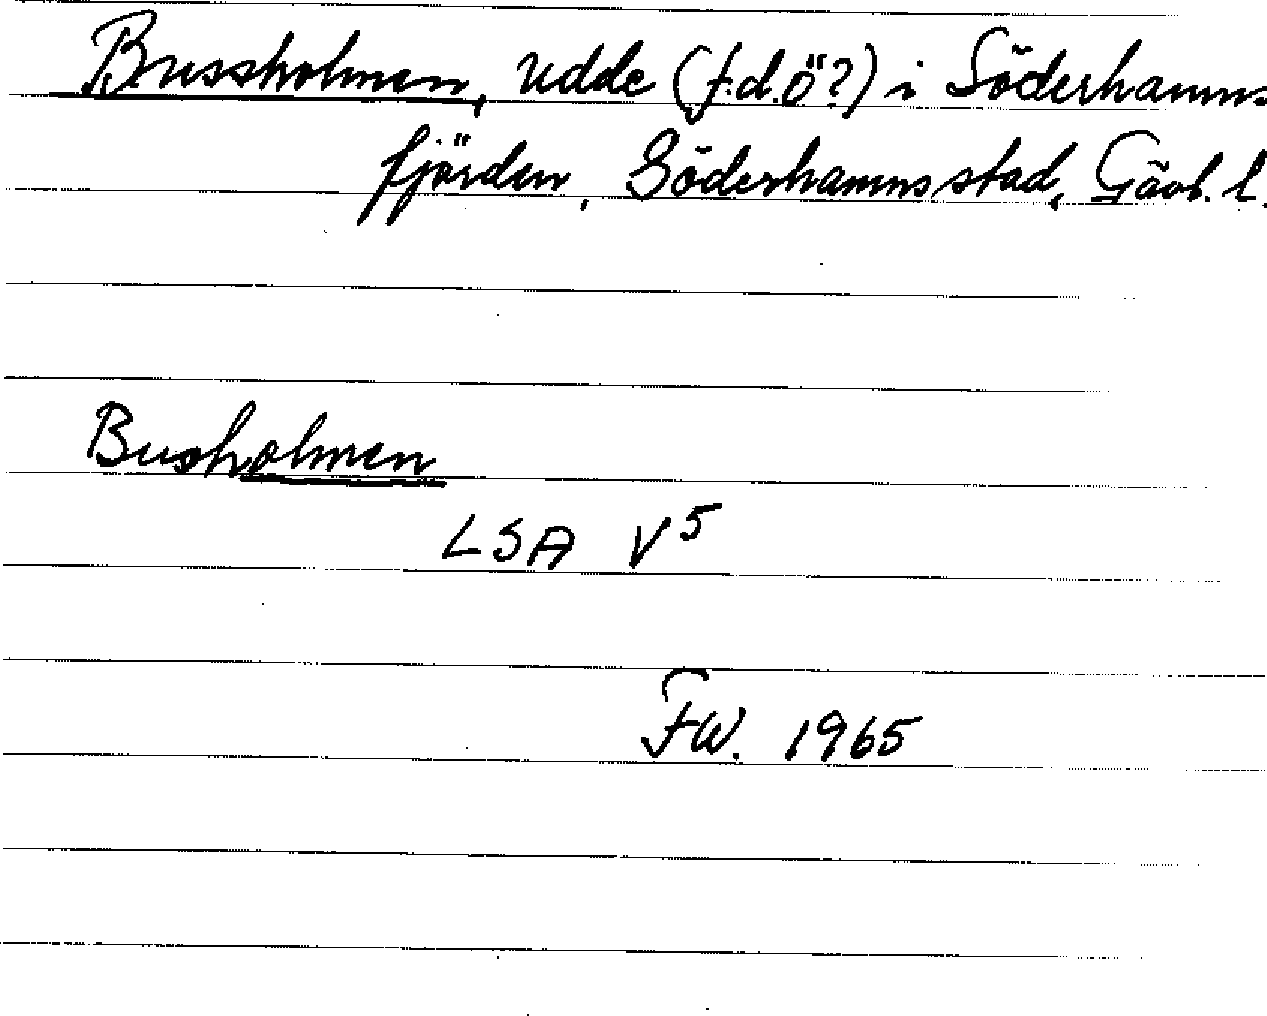 Bussholmen, udde (f.d. ö?) i Söderhamns
fjärden, Söderhamns stad, Gävl. l.
Busholmen
LSA V5
FW. 1965